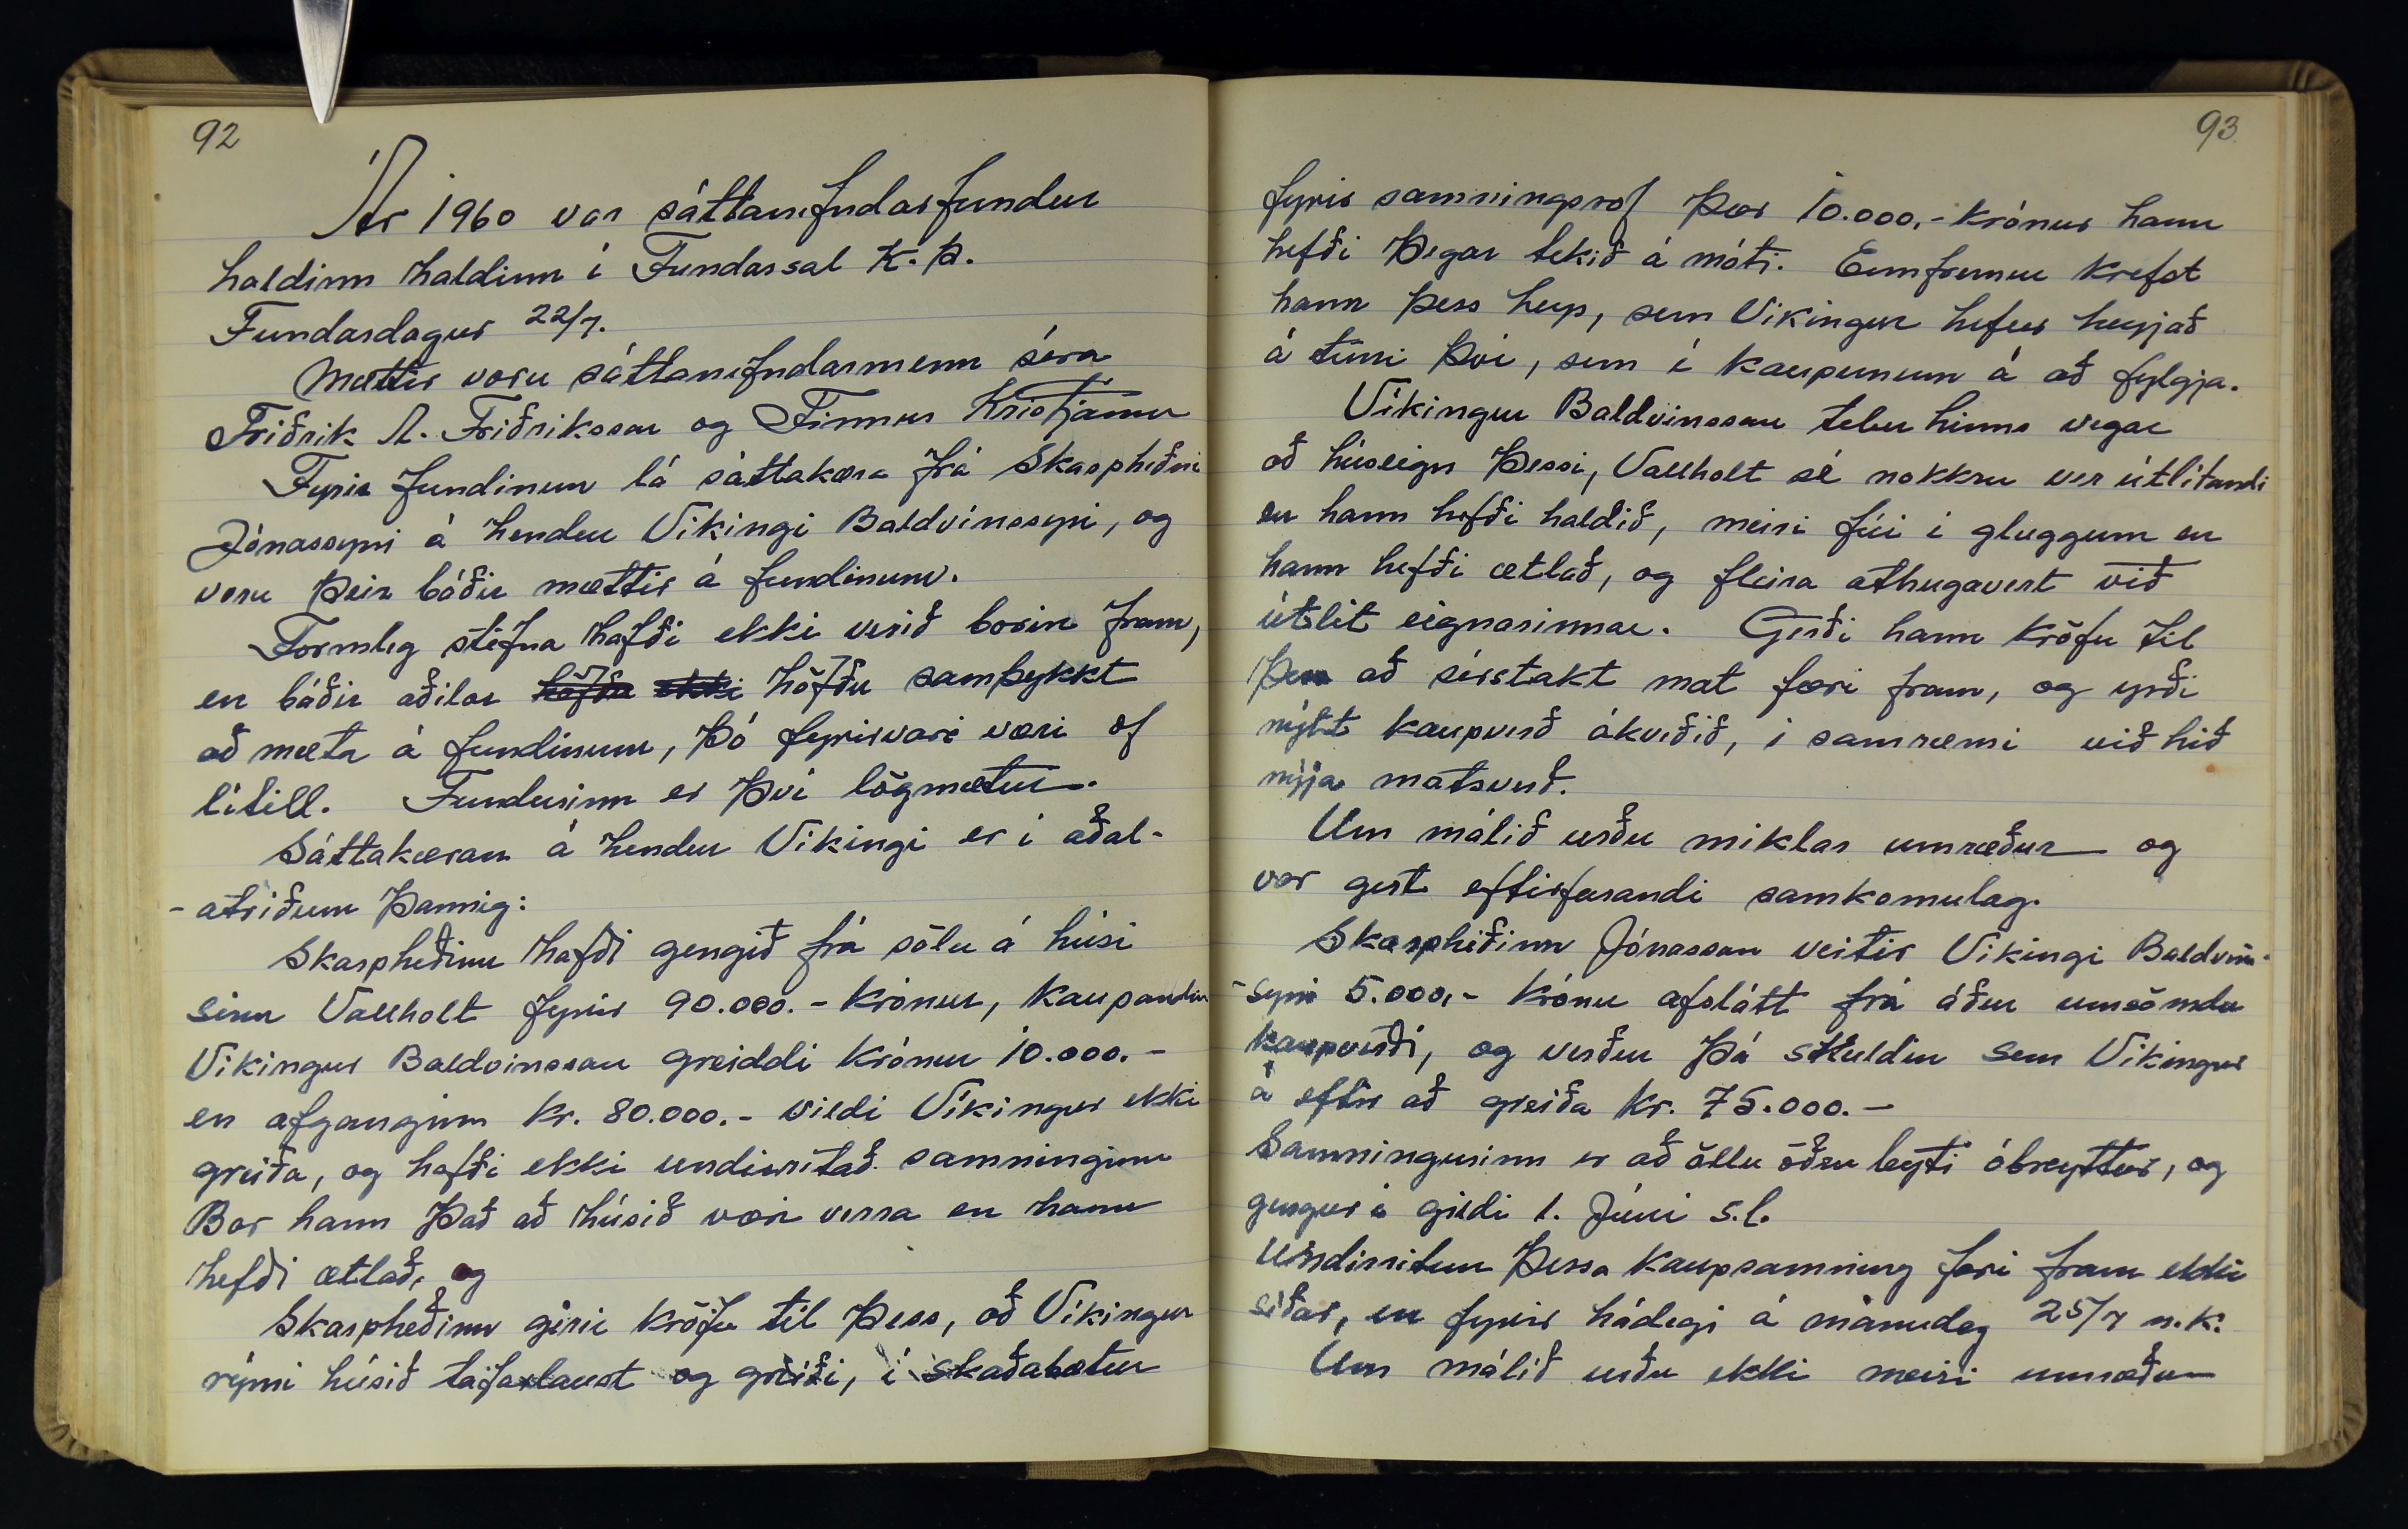 92
Ár 1960 var sáttanefndarfundur
haldinn haldinn í Fundarsal K.Þ.
Fundardagur 22/7.
Mættir voru sáttanefndarmenn séra
Friðrik A. Friðriksson og Finnur Kristjánss
Fyrir fundinum lá sáttakæra frá Skarphéðni
Jónassyni á hendur Víkingi Baldvinssyni, og
voru þeir báðir mættir á fundinum.
Formleg stefna hafði ekki verið borin fram,
en báðir aðilar höfðu ekki höfðu samþykkt
að mæta á fundinum, þó fyrirvari væri of
lítill. Fundurinn er því lögmætur.
Sáttakæran á hendur Víkingi er í aðal-
- atriðum þannig:
Skarphéðinn hafði gengið frá sölu á húsi
sínu Vallholt fyrir 90.000.- krónur, kaupandin
Víkingur Baldvinsson greiddi krónur 10.000.-
en afganginn kr. 80.000.- vildi Víkingur ekki
greiða, og hafði ekki undirritað samninginn
Bar hann það að húsið væri verra en hann
hefði ætlað, og
Skarphéðinn gerir kröfu til þess, að Víkingur
rými húsið tafarlaust og greiði, í skaðabætur
93
fyrir samningsrof þær 10.000,- krónur hann
hefði þegar tekið á móti. Ennfremur krefst
hann þess heys, sem Víkingur hefur heyjað
á túni því, sem í kaupunum á að fylgja.
Víkingur Baldvinsson telur hinns vegar
að húseign þessi, Vallholt sé nokkru ver útlítandi
en hann hefði haldið, meiri fúi í gluggum en
hann hefði ætlað, og fleira athugavert við
útlit eignarinnar. Gerði hann kröfu til
þess að sérstakt mat færi fram, og yrði
nýtt kaupverð ákveðið, í samræmi við hið
nýja matsverð.
Um málið urðu miklar umræður og
var gert eftirfarandi samkomulag.
Skarphéðinn Jónasson veitir Víkingi Baldvins-
- syni 5.000,- krónu afslátt frá áður umsömdu
kaupverði, og verður þá skuldin sem Víkingur
á eftir að greiða kr. 75.000.-
Samningurinn er að öllu öðru leyti óbreyttur, og
gengur í gildi 1. Júní s.l.
Undirritun þessa kaupsamning fari fram ekki
síðar, en fyrir hádegi á mánudag 25/7 n.k.
Um málið urðu ekki meiri umræður